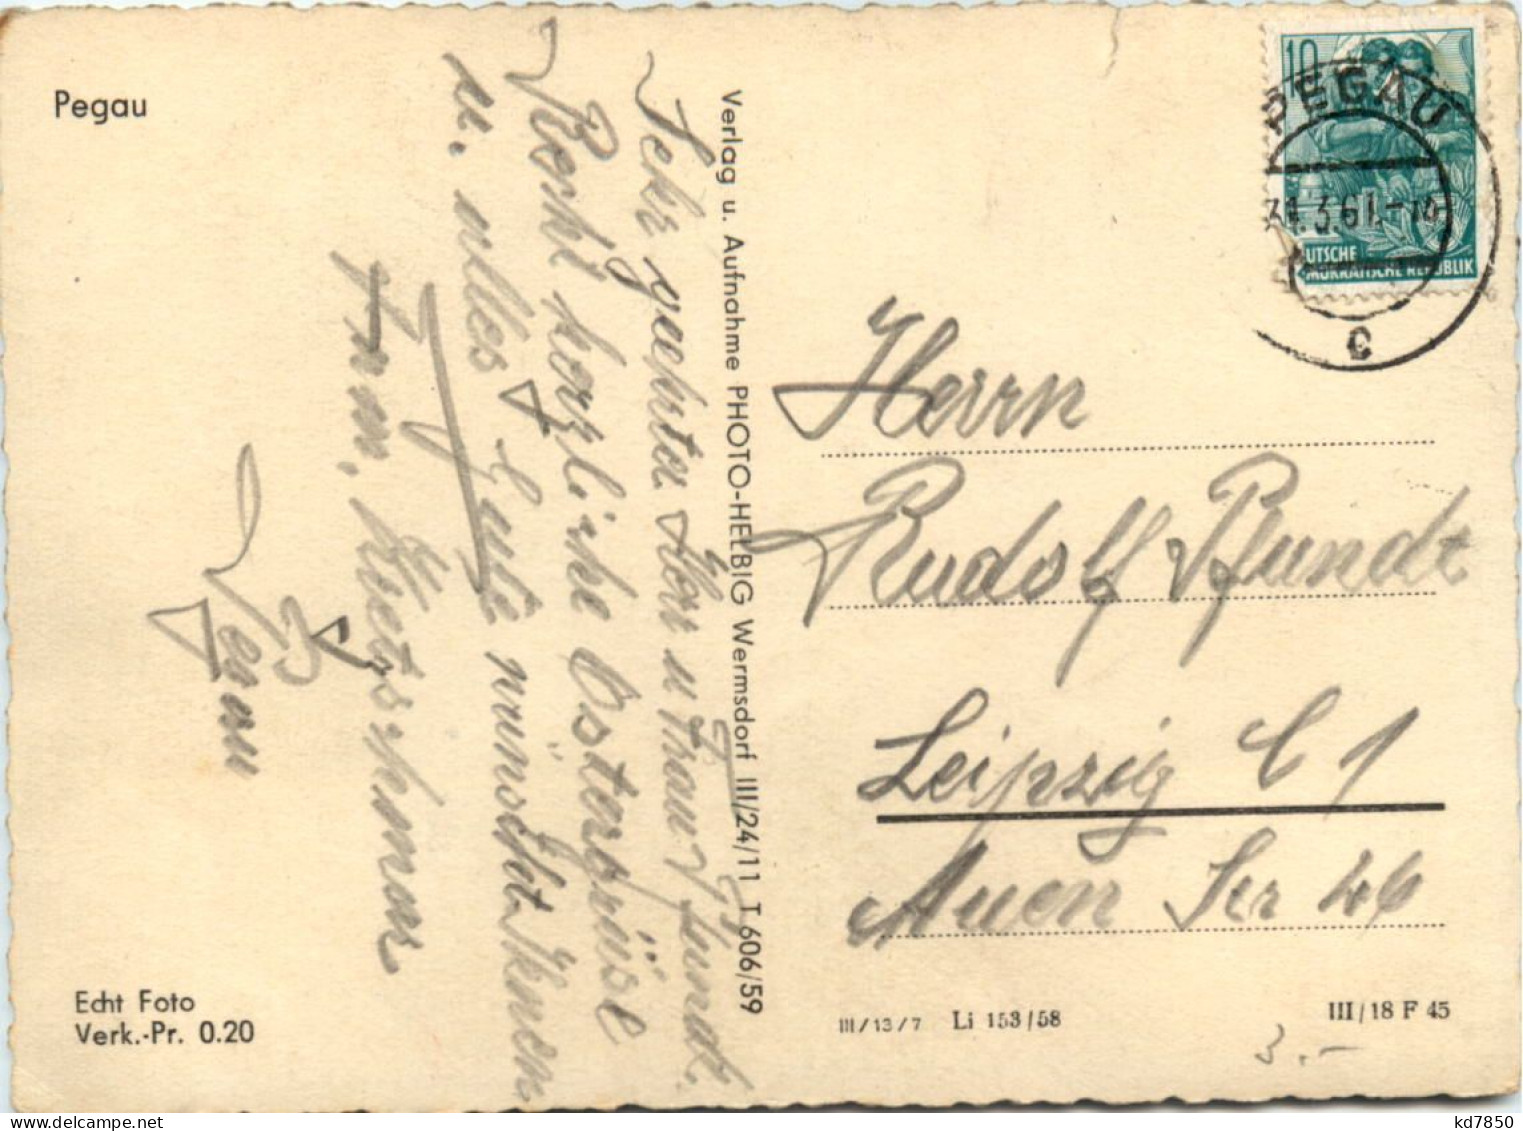 Pegau
Sehr geehrter Herr u Frau Pfundt.
Recht herzliche Ostergrüße
u. alles Gute wünscht Ihnen
Fam.
Pegau
Verlag u. Aufnahme PHOTO-HELBIG Wermsdorf III/24/11 T 606/59
10
PEGAU
31.3.61.-14
UTSCHE
MOKRATISCHE REPUBLIK
c
Herrn
Rudolf Pfundt
Leipzig C 1
Auen Str 46
Echt Foto
Verk.-Pr. 0.20
III/13/7 Li 153/58
III/18 F 45
3.-
kd7850